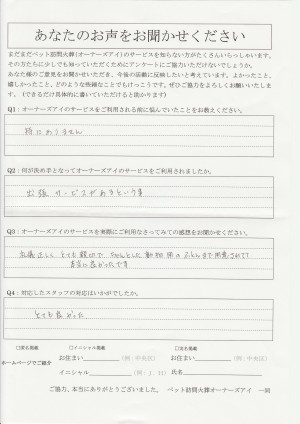 あなたのお声をお聞かせください
まだまだペット訪問火葬(オーナーズアイ)のサービスを知らない方がたくさんいらっしゃいます。
その方たちに少しでも知っていただくためにアンケートにご協力いただけないでしょうか。
あなた様のご意見をお聞かせいただき、今後の活動に反映したいと考えています。よかったこと、
嬉しかったこと、どのような些細なことでもけっこうです。ぜひご協力をよろしくお願いいたしま
す。(できるだけ具体的に書いていただけると助かります)
Q1：オーナーズアイのサービスをご利用される前に悩んでいたことをお教えください。
特にありません
Q2：何が決め手となってオーナーズアイのサービスをご利用されましたか。
出張サービスがあるという事
Q3：オーナーズアイのサービスを実際にご利用なさってみての感想をお聞かせください。
礼儀正しく とても親切で ちゃんとした動物用のふとんまで用意されてて
本当に良かったです
Q4：対応したスタッフの対応はいかがでしたか。
とても良かった
□実名掲載 □イニシャル掲載 □実名掲載
ホームページでご紹介
お住まい (例：中央区) お住まい (例：中央区)
イニシャル (例：J．H) 氏名
ご協力、本当にありがとうございました。 ペット訪問火葬オーナーズアイ 一同